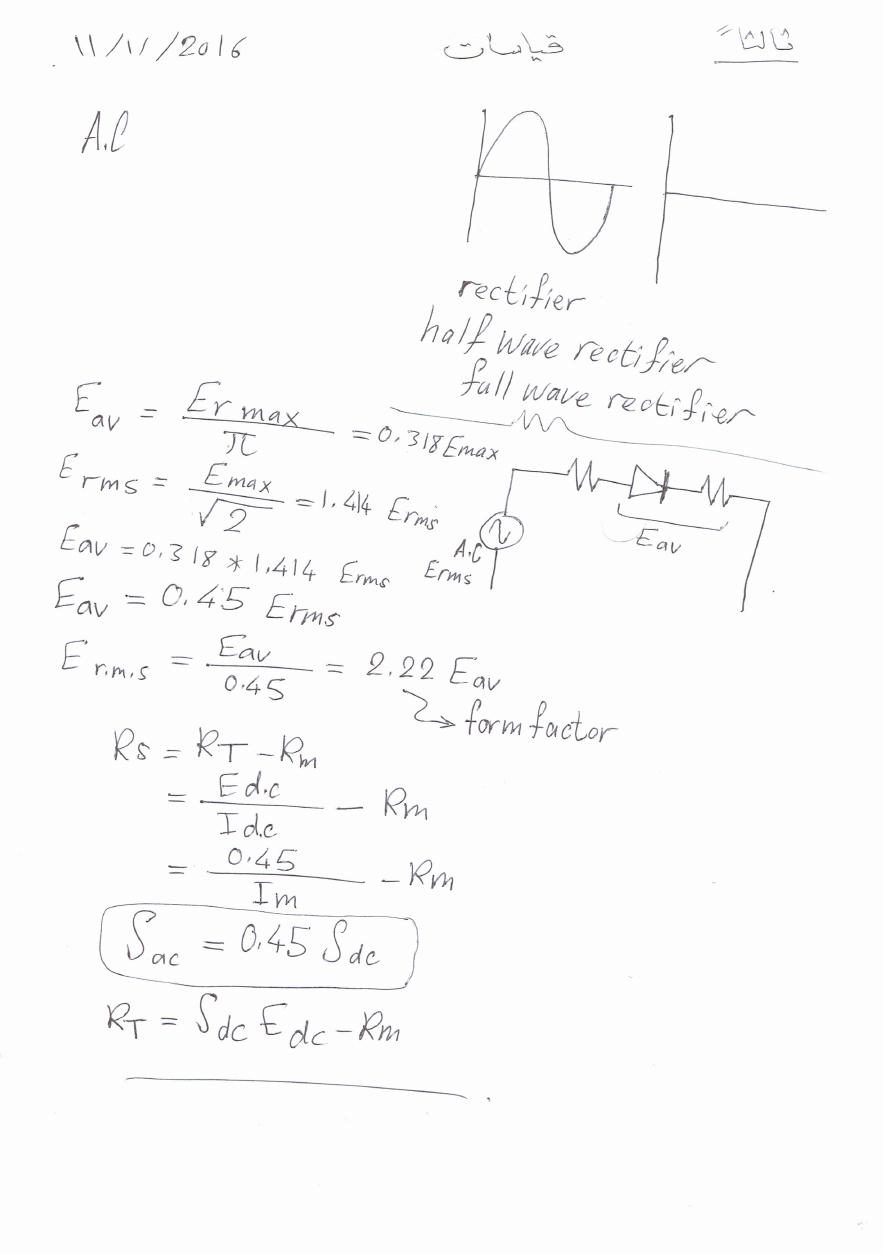 11/11/2016 قياسات ثالثاً
A.C
rectifier
half wave rectifier
full wave rectifier
Eav = Er max / π = 0.318 Emax
Erms = Emax / √2 = 1.414 Erms
Eav = 0.318 * 1.414 Erms
A.C
Erms
Eav
Eav = 0.45 Erms
Er.m.s = Eav / 0.45 = 2.22 Eav
form factor
Rs = RT - Rm
= Ed.c / Idc - Rm
= 0.45 / Im - Rm
Sac = 0.45 Sdc
RT = Sdc Edc - Rm